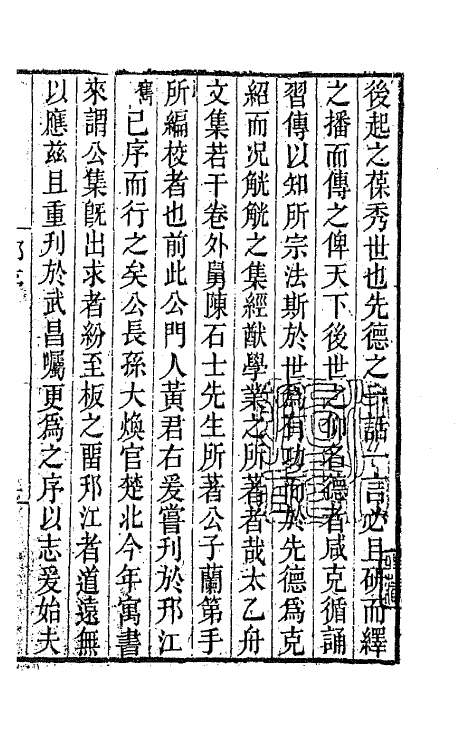 後起之葆秀世也先德之一話一言必且研而繹
之播而傳之俾天下後世之仰名德者咸克循誦
習傳以知所宗法斯於世爲有功而於先德爲克
紹而况觥觥之集經猷學業之所著者哉太乙舟
文集若干卷外舅陳石士先生所著公子蘭第手
所編校者也前此公門人黃君右爰嘗刊於邗江
舊已序而行之矣公長孫大煥官楚北今年寓書
來謂公集旣出求者紛至板之畱邗江者道遠無
以應兹且重刊於武昌囑更爲之序以志爰始夫